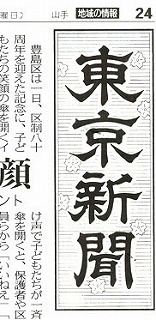 曜日）
山手
地域の情報
24
東京新聞
豊島区は一日、区制八十
周年を迎えた記念に、子ど
もたちの笑顔の傘を開くイ
顔
ント
け声で子どもたちが一斉
傘を開くと、保護者や区
員らから「いいねえ」